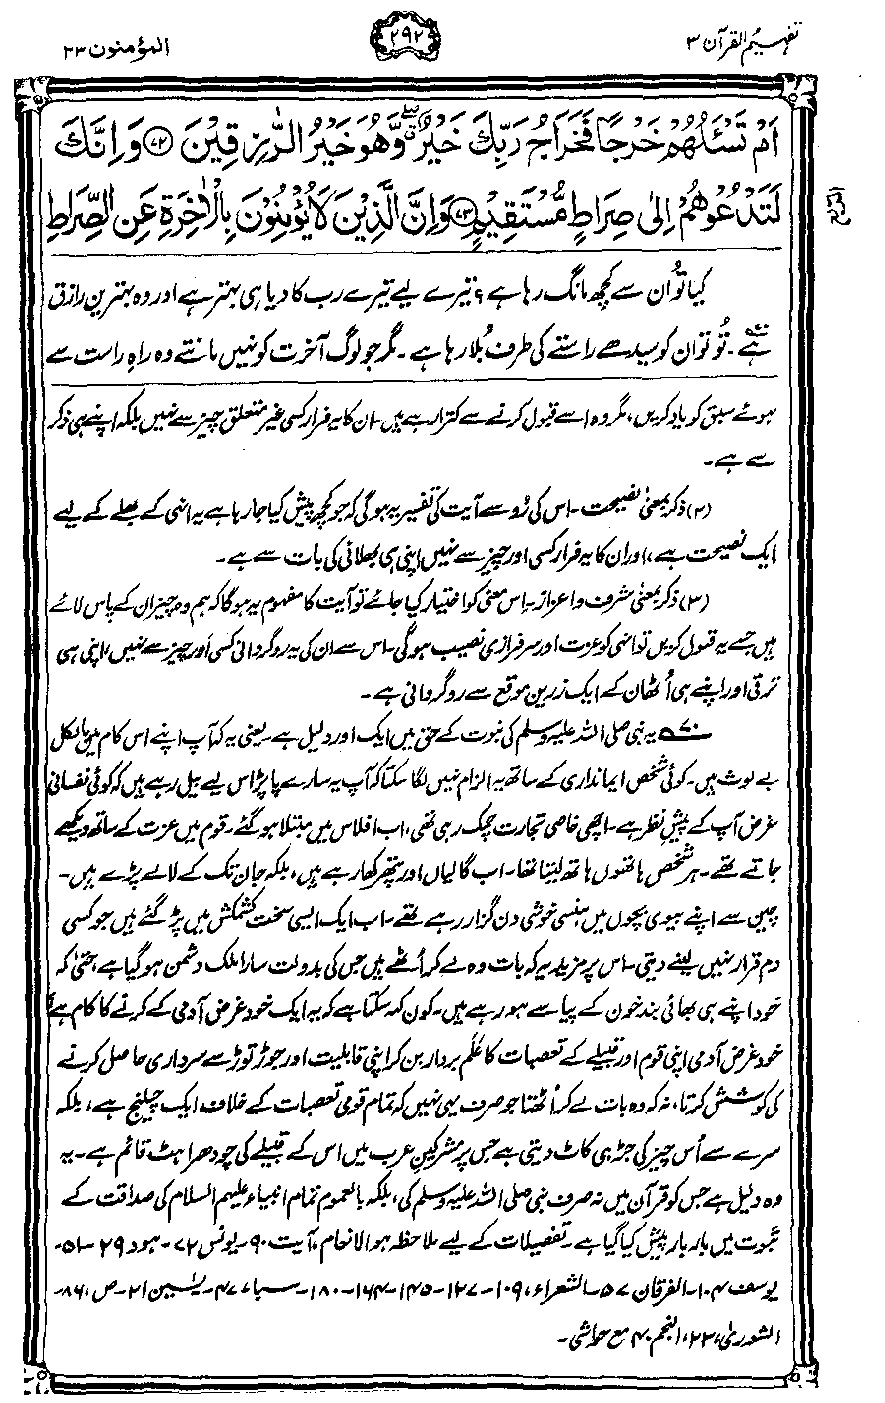 تفہیم القرآن ۳
۲۹۲
المؤمنون ۲۳
اَمْ تَسْئَلُهُمْ خَرْجًا فَخَرَاجُ رَبِّكَ خَيْرٌ ۖ وَّهُوَ خَيْرُ الرّٰزِقِيْنَ ﴿۷۲﴾ وَاِنَّكَ
لَتَدْعُوْهُمْ اِلٰى صِرَاطٍ مُّسْتَقِيْمٍ ﴿۷۳﴾ وَاِنَّ الَّذِيْنَ لَا يُؤْمِنُوْنَ بِالْاٰخِرَةِ عَنِ الصِّرَاطِ
کیا تُو ان سے کچھ مانگ رہا ہے؟ تیرے لیے تیرے رب کا دیا ہی بہتر ہے اور وہ بہترین رازق
ہے۔ تُو تو ان کو سیدھے راستے کی طرف بُلا رہا ہے۔ مگر جو لوگ آخرت کو نہیں مانتے وہ راہِ راست سے
ہوئے سبق کو یاد کریں، مگر وہ اسے قبول کرنے سے کترا رہے ہیں۔ ان کا یہ فرار کسی غیر متعلق چیز سے نہیں بلکہ اپنے ہی ذکر
سے ہے۔
(۲) ذکر بمعنی نصیحت۔ اس کی رُو سے آیت کی تفسیر یہ ہوگی کہ جو کچھ پیش کیا جا رہا ہے یہ انہی کے بھلے کے لیے
ایک نصیحت ہے، اور ان کا یہ فرار کسی اور چیز سے نہیں اپنی ہی بھلائی کی بات سے ہے۔
(۳) ذکر بمعنی شرف و اعزاز۔ اس معنی کو اختیار کیا جائے تو آیت کا مفہوم یہ ہوگا کہ ہم وہ چیز ان کے پاس لائے
ہیں جسے یہ قبول کریں تو انہی کو عزت اور سرفرازی نصیب ہوگی۔ اس سے ان کی یہ روگردانی کسی اور چیز سے نہیں، اپنی ہی
ترقی اور اپنے ہی اُٹھان کے ایک زرین موقع سے روگردانی ہے۔
۷۰؎ یہ نبی صلی اللہ علیہ وسلم کی نبوت کے حق میں ایک اور دلیل ہے۔ یعنی یہ کہ آپ اپنے اس کام میں بالکل
بے لوث ہیں۔ کوئی شخص ایمانداری کے ساتھ یہ الزام نہیں لگا سکتا کہ آپ یہ سارے پاپڑ اس لیے بیل رہے ہیں کہ کوئی نفسانی
غرض آپ کے پیشِ نظر ہے۔ اچھی خاصی تجارت چمک رہی تھی، اب افلاس میں مبتلا ہو گئے۔ قوم میں عزت کے ساتھ دیکھے
جاتے تھے۔ ہر شخص ہاتھوں ہاتھ لیتا تھا۔ اب گالیاں اور پتھر کھا رہے ہیں، بلکہ جان تک کے لالے پڑے ہیں۔
چین سے اپنے بیوی بچوں میں ہنسی خوشی دن گزار رہے تھے۔ اب ایک ایسی سخت کشمکش میں پڑ گئے ہیں جو کسی
دم قرار نہیں لینے دیتی۔ اس پر مزید یہ کہ بات وہ لے کر اُٹھے ہیں جس کی بدولت سارا ملک دشمن ہو گیا ہے، حتیٰ کہ
خود اپنے ہی بھائی بند خون کے پیاسے ہو رہے ہیں۔ کون کہہ سکتا ہے کہ یہ ایک خود غرض آدمی کے کرنے کا کام ہے؟
خود غرض آدمی اپنی قوم اور قبیلے کے تعصبات کا عَلَم بردار بن کر اپنی قابلیت اور جوڑ توڑ سے سرداری حاصل کرنے
کی کوشش کرتا، نہ کہ وہ بات لے کر اُٹھتا جو صرف یہی نہیں کہ تمام قومی تعصبات کے خلاف ایک چیلنج ہے، بلکہ
سرے سے اُس چیز کی جڑ ہی کاٹ دیتی ہے جس پر مشرکینِ عرب میں اس کے قبیلے کی چودھراہٹ قائم ہے۔ یہ
وہ دلیل ہے جس کو قرآن میں نہ صرف نبی صلی اللہ علیہ وسلم کی، بلکہ بالعموم تمام انبیاء علیہم السلام کی صداقت کے
ثبوت میں بار بار پیش کیا گیا ہے۔ تفصیلات کے لیے ملاحظہ ہو الانعام، آیت ۹۰۔ یونس ۷۲۔ ہود ۲۹۔ ۵۱۔
یوسف ۱۰۴۔ الفرقان ۵۷۔ الشعراء، ۱۰۹۔ ۱۲۷۔ ۱۴۵۔ ۱۶۴۔ ۱۸۰۔ سباء ۴۷۔ یٰسین ۲۱۔ ص، ۸۶۔
الشوریٰ، ۲۳، النجم ۴۰ مع حواشی۔